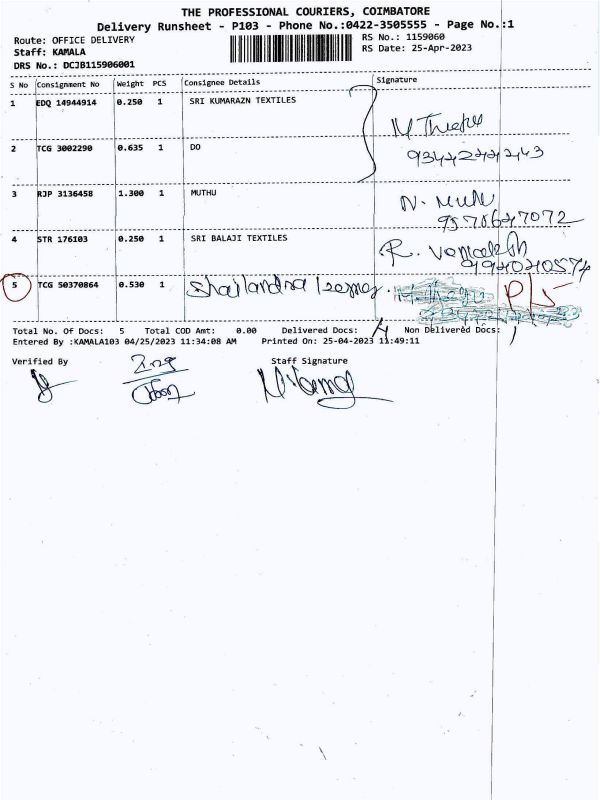 THE PROFESSIONAL COURIERS, COIMBATORE
Delivery Runsheet - P103 - Phone No.:0422-3505555 - Page No.:1
Route: OFFICE DELIVERY
RS No.: 1159060
Staff: KAMALA
RS Date: 25-Apr-2023
DRS No.: DCJB115906001
S No Consignment No Weight PCS Consignee Details Signature
1 EDQ 14944914 0.250 1 SRI KUMARAZN TEXTILES
2 TCG 3002290 0.635 1 DO
3 RJP 3136458 1.300 1 MUTHU
N. Muthu
9578647072
4 STR 176103 0.250 1 SRI BALAJI TEXTILES
R.
5 TCG 50370864 0.530 1
Total No. Of Docs: 5 Total COD Amt: 0.00 Delivered Docs: 4 Non Delivered Docs: 1
Entered By :KAMALA103 04/25/2023 11:34:08 AM Printed On: 25-04-2023 11:49:11
Verified By Staff Signature